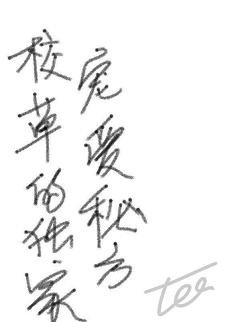 校草的独家
宠爱秘方
Tee